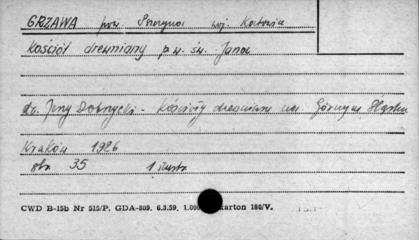 GRZAWA pow. Pszczyna woj. Katowice
kościół drewniany p.w. św. Jana
dr. Jerzy Dobrzycki - Kościoły drewniane na Górnym Śląsku
Kraków 1926
str. 35 1 ilustr.
CWD B-15b Nr 515/P. GDA-809. 6.3.59. 1.000 karton 180/V.